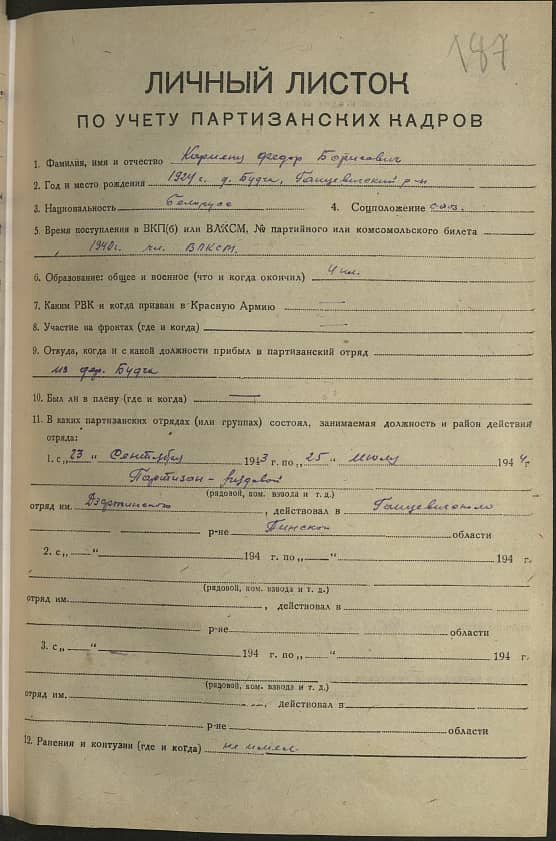 187
ЛИЧНЫЙ ЛИСТОК
ПО УЧЕТУ ПАРТИЗАНСКИХ КАДРОВ
1. Фамилия, имя и отчество Федор Борисович
2. Год и место рождения 1924 г. д. Будча, Ганцевичский р-н
3. Национальность белорусс 4. Соцположение
5. Время поступления в ВКП(б) или ВЛКСМ, № партийного или комсомольского билета
1940г. чл. ВЛКСМ.
6. Образование: общее и военное (что и когда окончил) 4 кл.
7. Каким РВК и когда призван в Красную Армию —
8. Участие на фронтах (где и когда) —
9. Откуда, когда и с какой должности прибыл в партизанский отряд
из дер. Будча
10. Был ли в плену (где и когда) —
11. В каких партизанских отрядах (или группах) состоял, занимаемая должность и район действий
отряда:
1. с „23“ Сентября 1943 г. по „25“ июля 1944 г.
Партизан - рядовой
(рядовой, ком. взвода и т. д.)
отряд им. Дзержинского, действовал в Ганцевичском
р-не Пинской области
2. с „—“ 194 г. по „—“ 194 г.
(рядовой, ком. взвода и т. д.)
отряд им. , действовал в
р-не области
3. с „ “ — 194 г. по „—“ 194 г.
(рядовой, ком. взвода и т. д.)
отряд им. , действовал в
р-не области
12. Ранения и контузии (где и когда) не имел